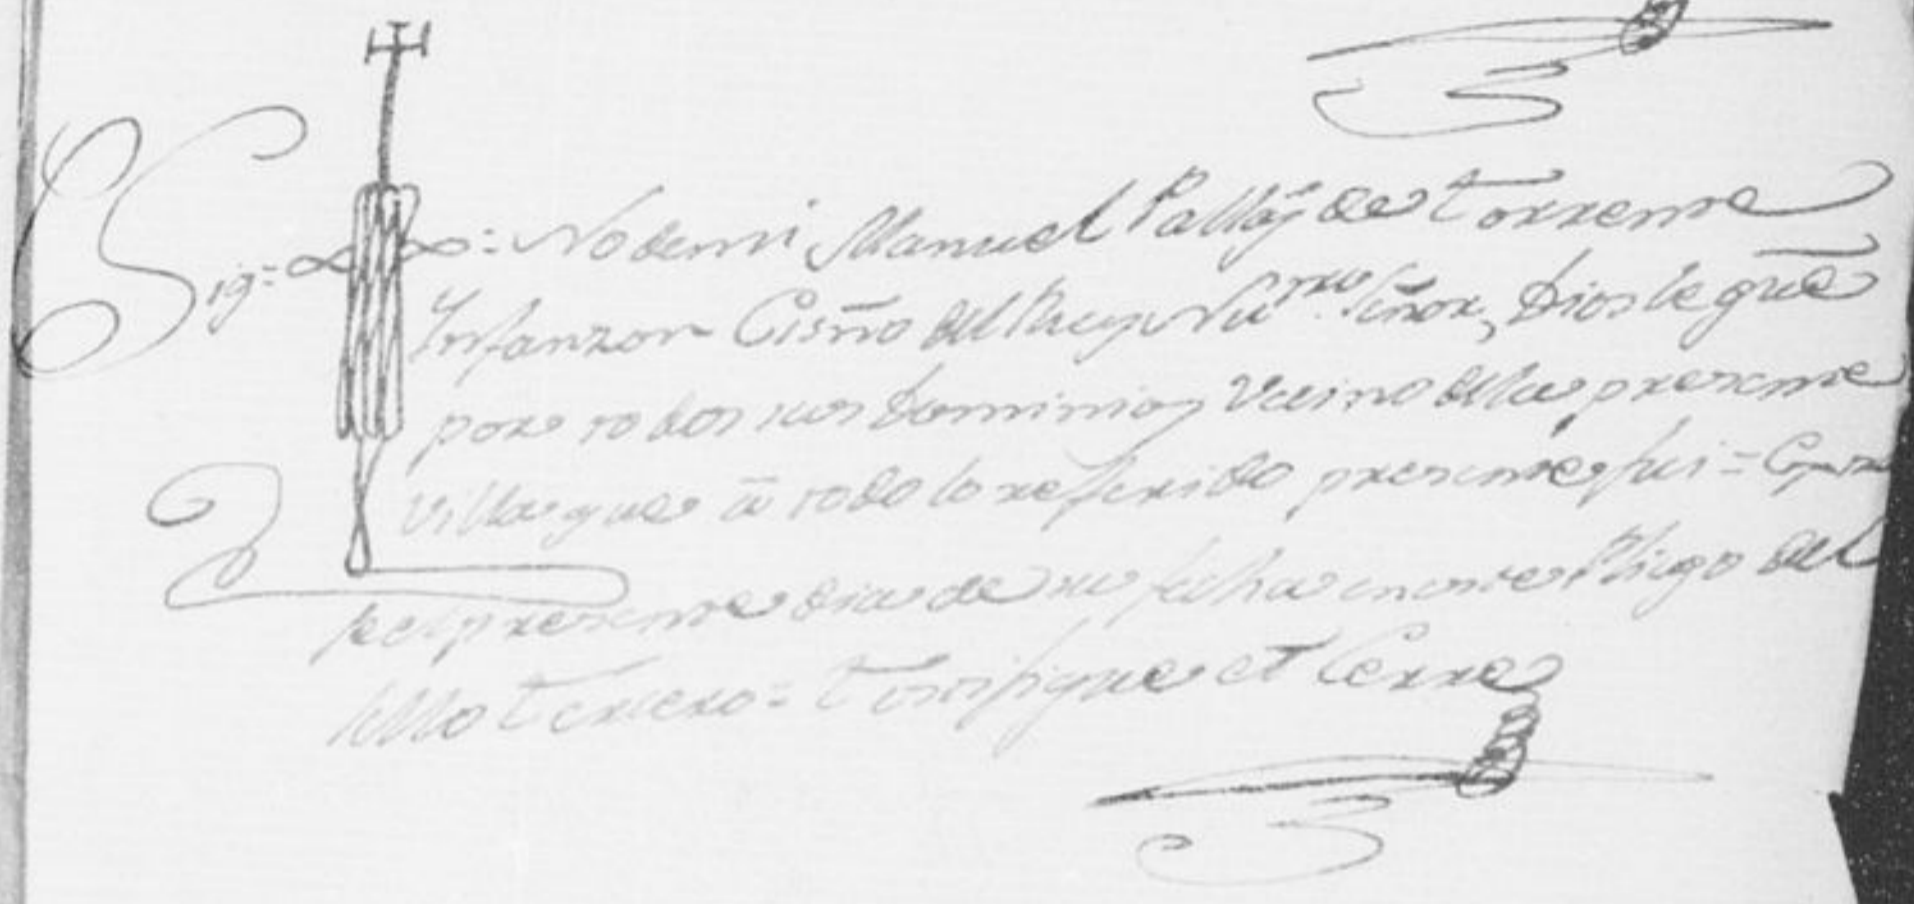 Sig= = No de mi Manuel Pallás de Torrente
Infanzon Essño del Rey Nuro. Señor, Dios le gũe
por todos sus Dominios Vecino de la presente
Villa, que à todo lo referido presente fui =
presente dia de su fecha en este Pliego del
sello tercero = Testifique et Cerre